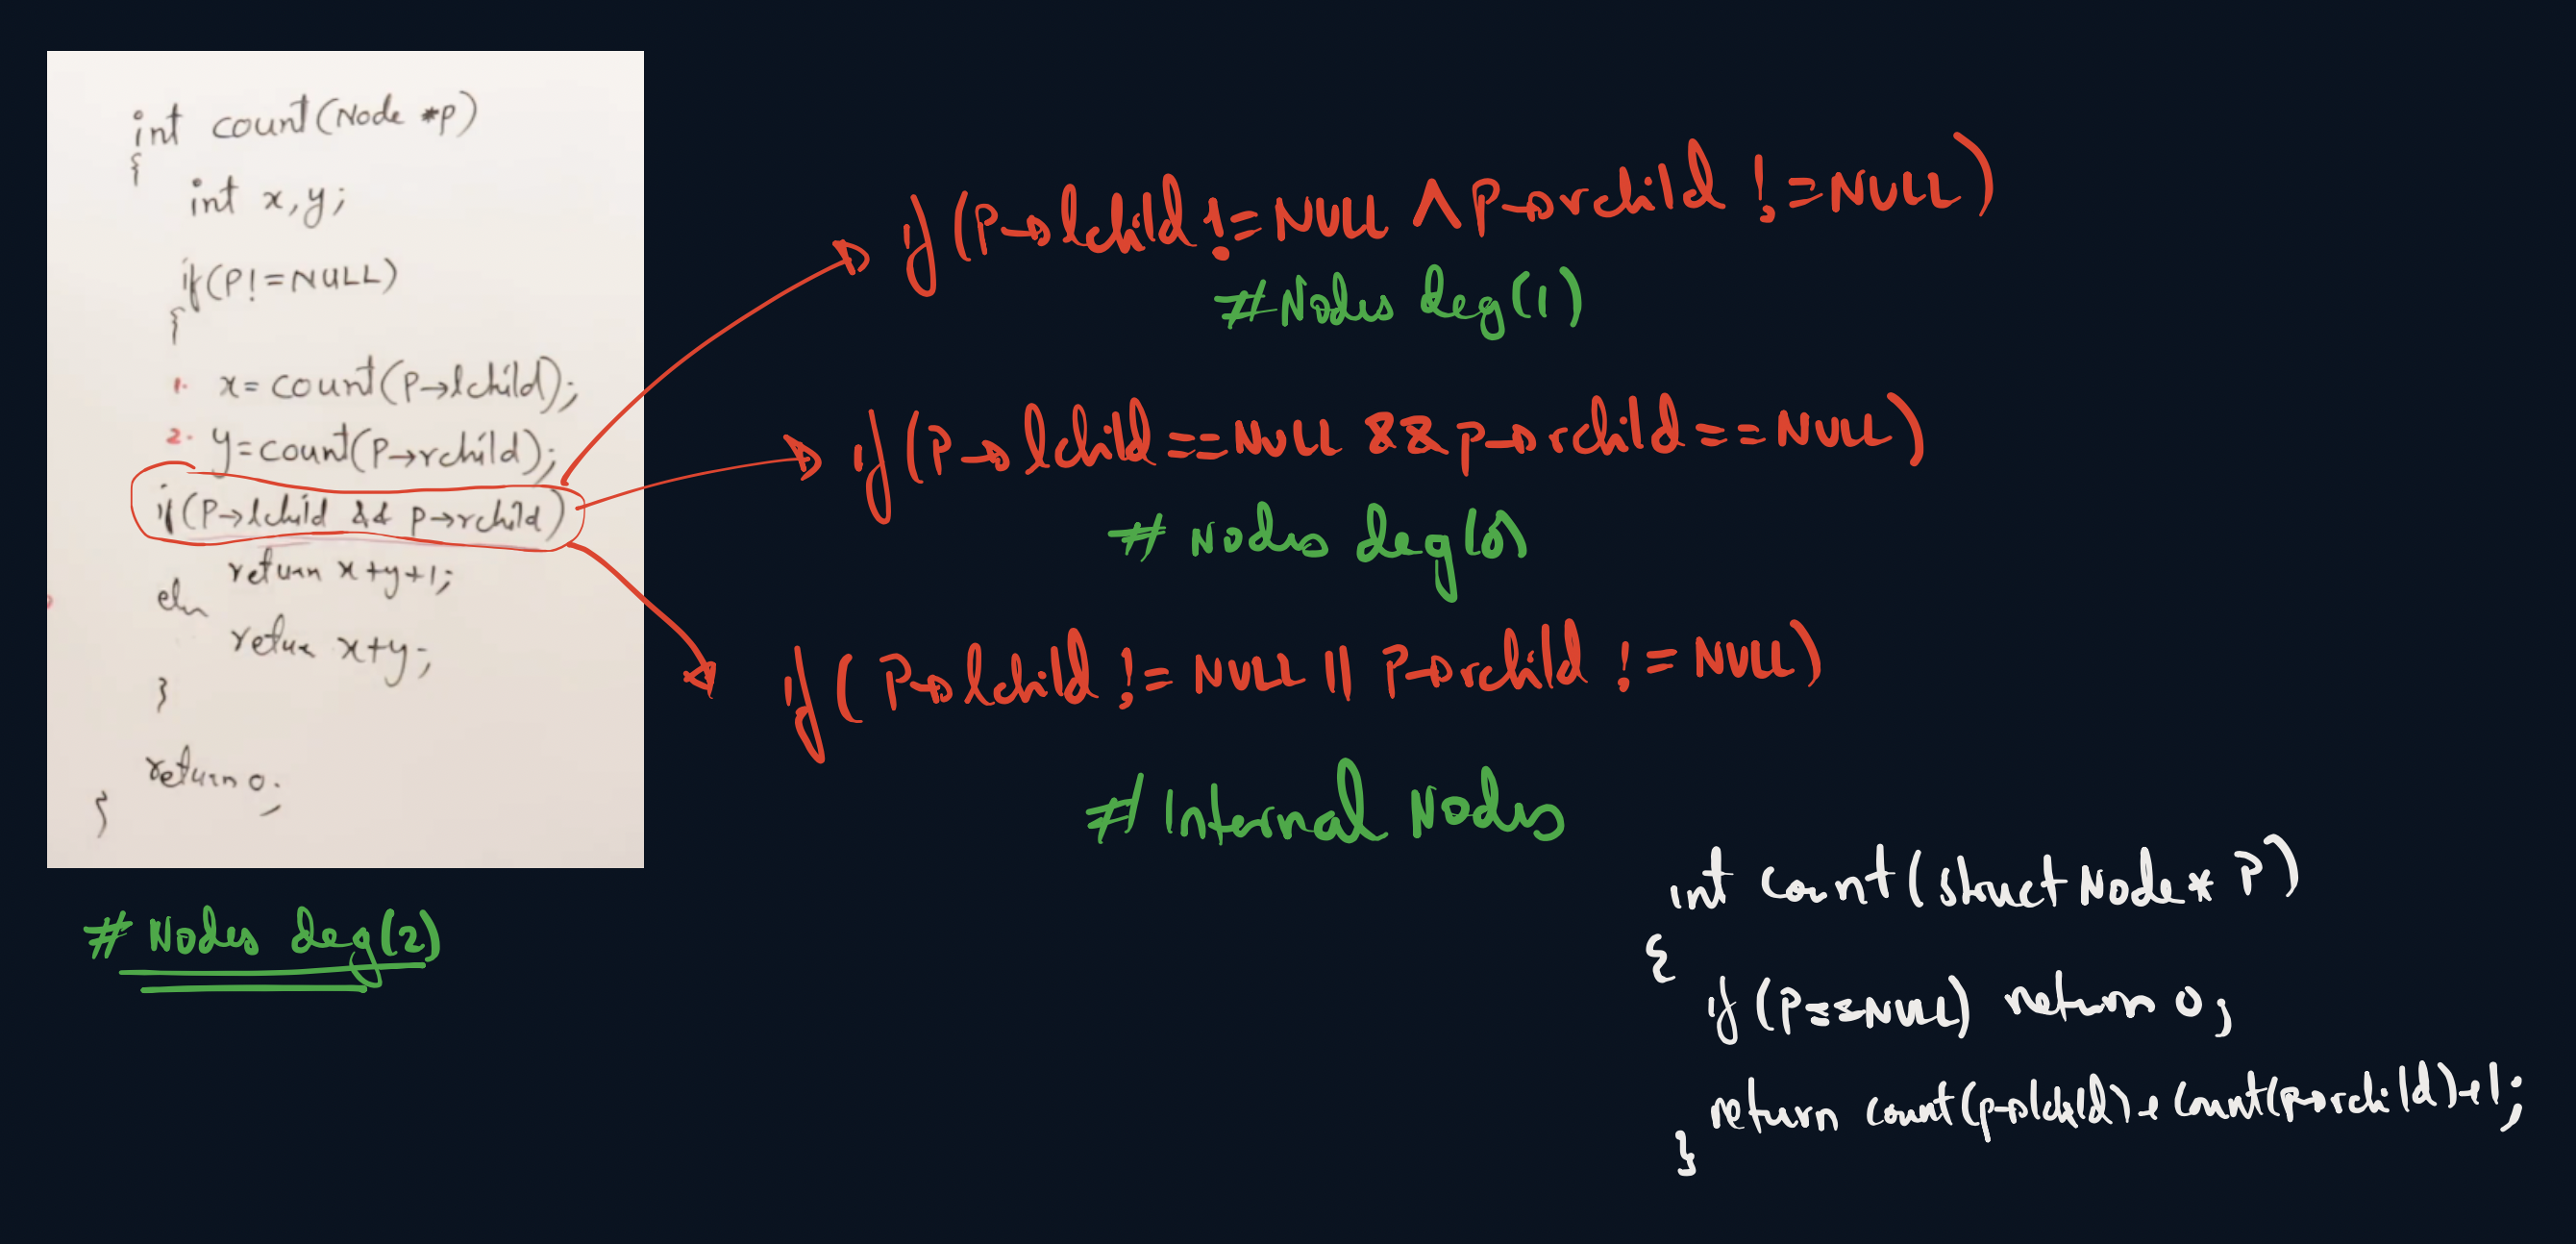 int count(Node *p)
{
int x,y;
if(P!=NULL)
{
1. x=count(P→lchild);
2. y=count(P→rchild);
if(P→lchild && p→rchild)
return x+y+1;
else
return x+y;
}
return 0;
}
# Nodes deg(2)
if(P→lchild!=NULL ∧ P→rchild !=NULL)
#Nodes deg(1)
if(P→lchild==NULL && p→rchild==NULL)
# Nodes deg(0)
if( P→lchild != NULL || P→rchild != NULL)
# Internal Nodes
int count(struct Node* P)
{
if(P==NULL) return 0;
return count(p→lchild)+count(p→rchild)+1;
}